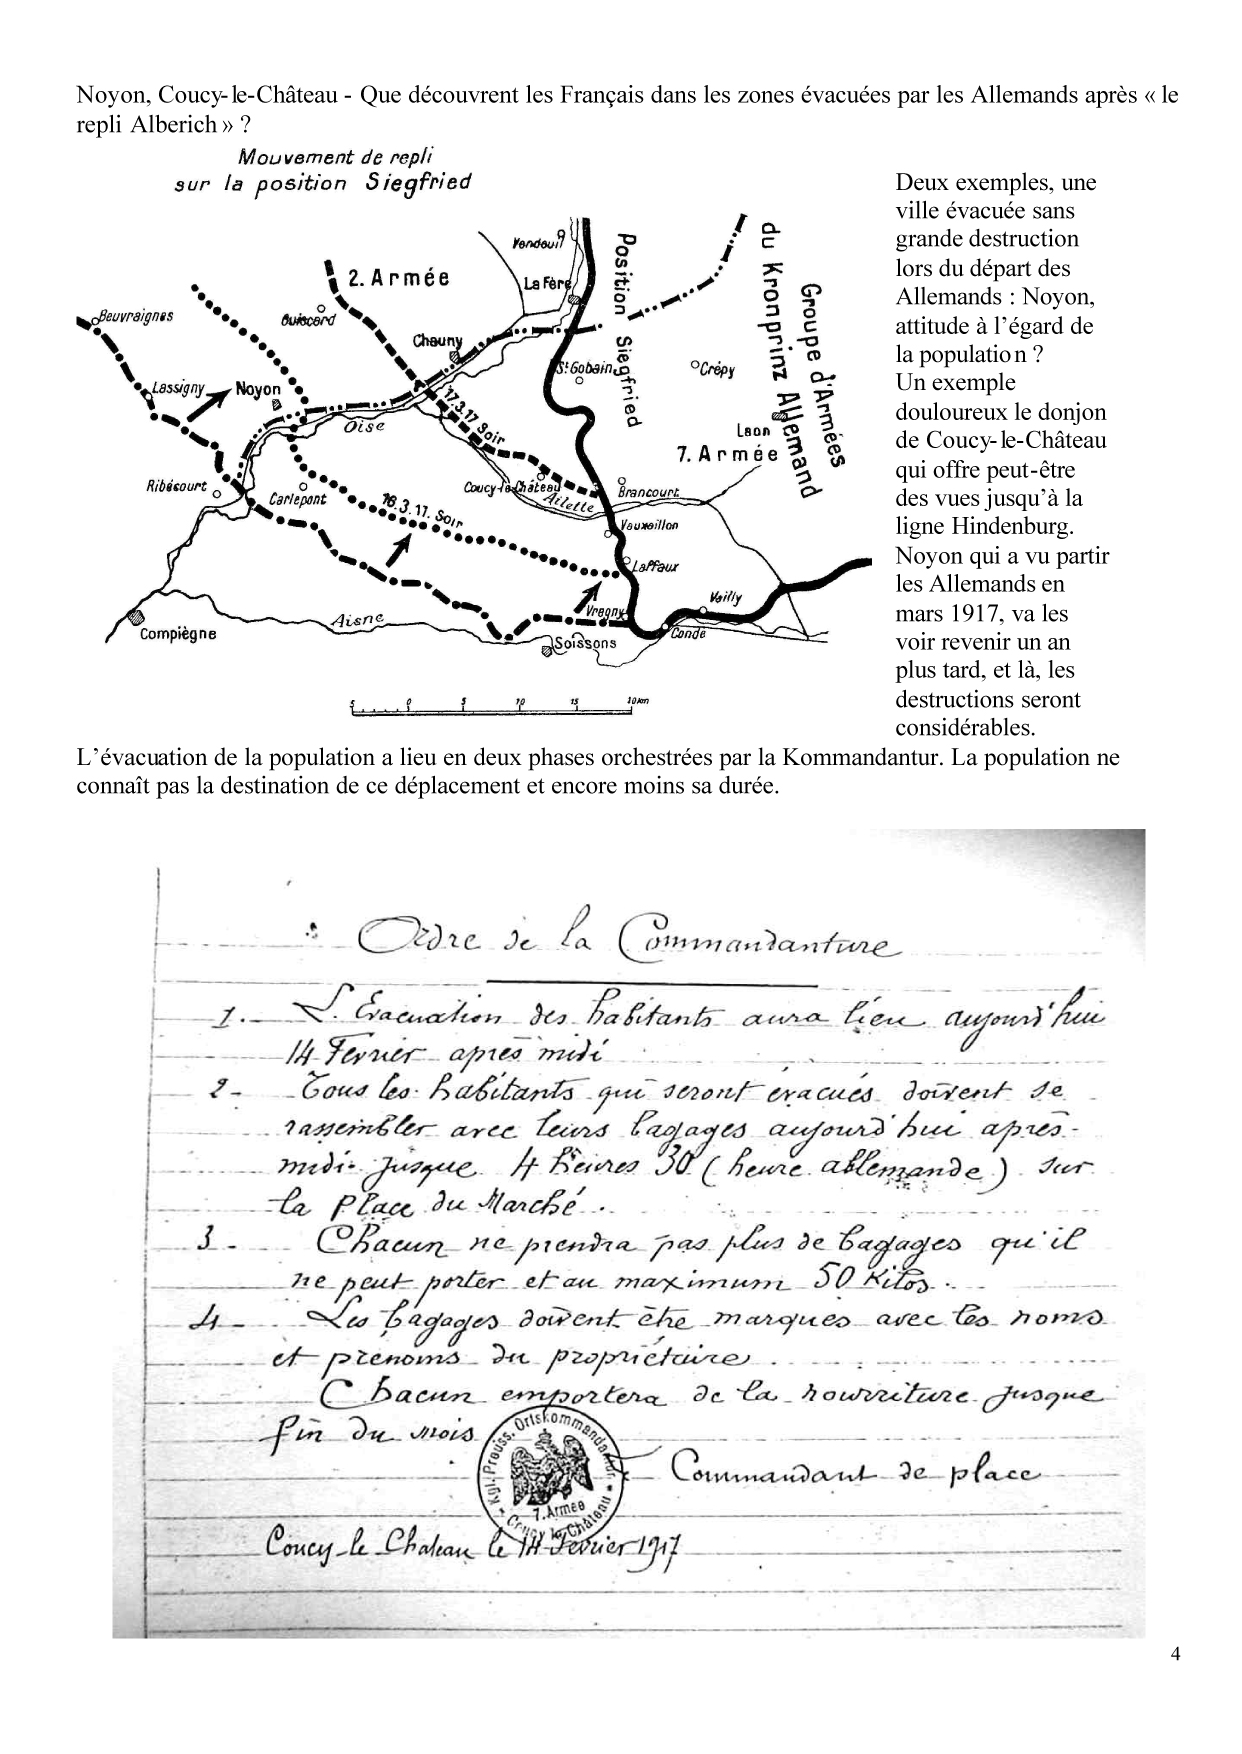 Noyon, Coucy-le-Château - Que découvrent les Français dans les zones évacuées par les Allemands après « le
repli Alberich » ?
Mouvement de repli
sur la position Siegfried
Vendeuil
Position Siegfried
du Kronprinz Allemand
Groupe d'Armées
2. Armée
La Fère
Beuvraignes
Guiscard
Chauny
St Gobain
Crépy
Lassigny
Noyon
17.3.17 Soir
Oise
Laon
7. Armée
Ribécourt
Carlepont
Coucy-le-Château
Ailette
Brancourt
16.3.17. Soir
Vauxaillon
Laffaux
Vregny
Vailly
Aisne
Compiègne
Condé
Soissons
5 0 5 10 15 10km
Deux exemples, une
ville évacuée sans
grande destruction
lors du départ des
Allemands : Noyon,
attitude à l'égard de
la population ?
Un exemple
douloureux le donjon
de Coucy-le-Château
qui offre peut-être
des vues jusqu'à la
ligne Hindenburg.
Noyon qui a vu partir
les Allemands en
mars 1917, va les
voir revenir un an
plus tard, et là, les
destructions seront
considérables.
L'évacuation de la population a lieu en deux phases orchestrées par la Kommandantur. La population ne
connaît pas la destination de ce déplacement et encore moins sa durée.
Ordre de la Commandanture
1. - L'Evacuation des habitants aura lieu aujourd'hui
14 Février après midi
2 - Tous les habitants qui seront évacués doivent se
rassembler avec leurs bagages aujourd'hui après-
midi jusque 4 heures 30 (heure allemande) sur
la Place du Marché.
3 - Chacun ne prendra pas plus de bagages qu'il
ne peut porter et au maximum 50 Kilos.
4 - Les bagages doivent être marqués avec les noms
et prénoms du propriétaire.
Chacun emportera de la nourriture jusque
fin du mois
Kgl. Preuss. Ortskommandantur
7. Armée
Coucy le Château
Commandant de place
Coucy-le Chateau le 14 Février 1917
4